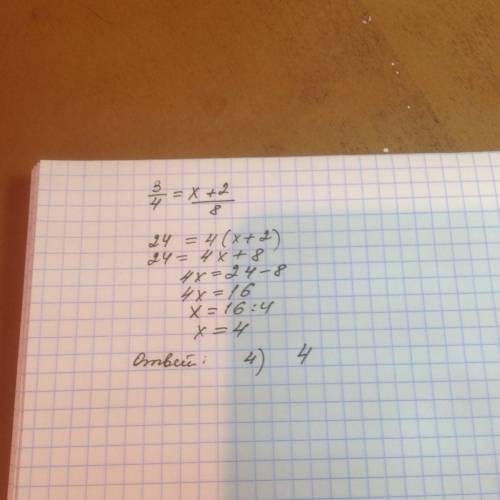 3/4 = x+2/8
24 = 4(x+2)
24 = 4x+8
4x = 24-8
4x = 16
x = 16:4
x = 4
Ответ: 4) 4